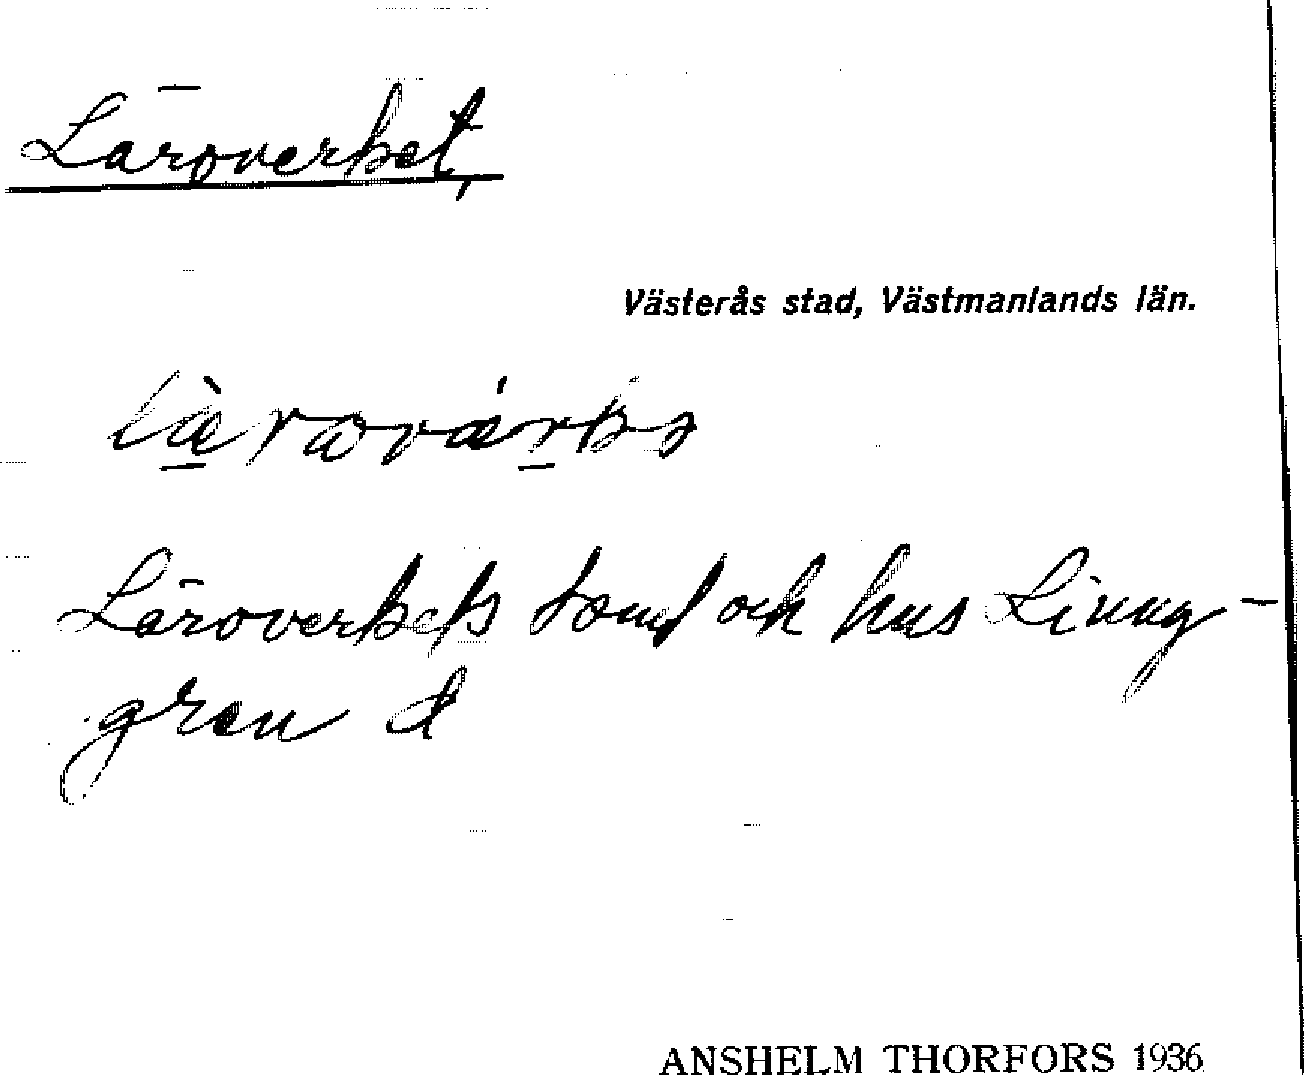 Läroverket,
Västerås stad, Västmanlands län.
Läroverkets tomt och hus Ljung-
gren d
ANSHELM THORFORS 1936